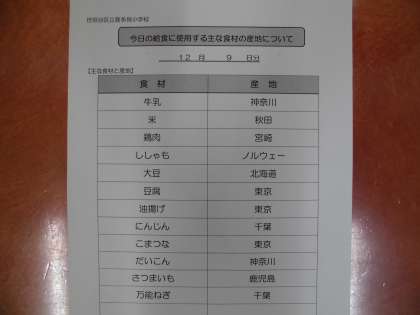 今日の給食に使用する主な食材の産地について
12 月 9 日分
【主な食材と産地】
食 材 産 地
牛乳 神奈川
米 秋田
鶏肉 宮崎
ししゃも ノルウェー
大豆 北海道
豆腐 東京
油揚げ 東京
にんじん 千葉
こまつな 東京
だいこん 神奈川
さつまいも 鹿児島
万能ねぎ 千葉